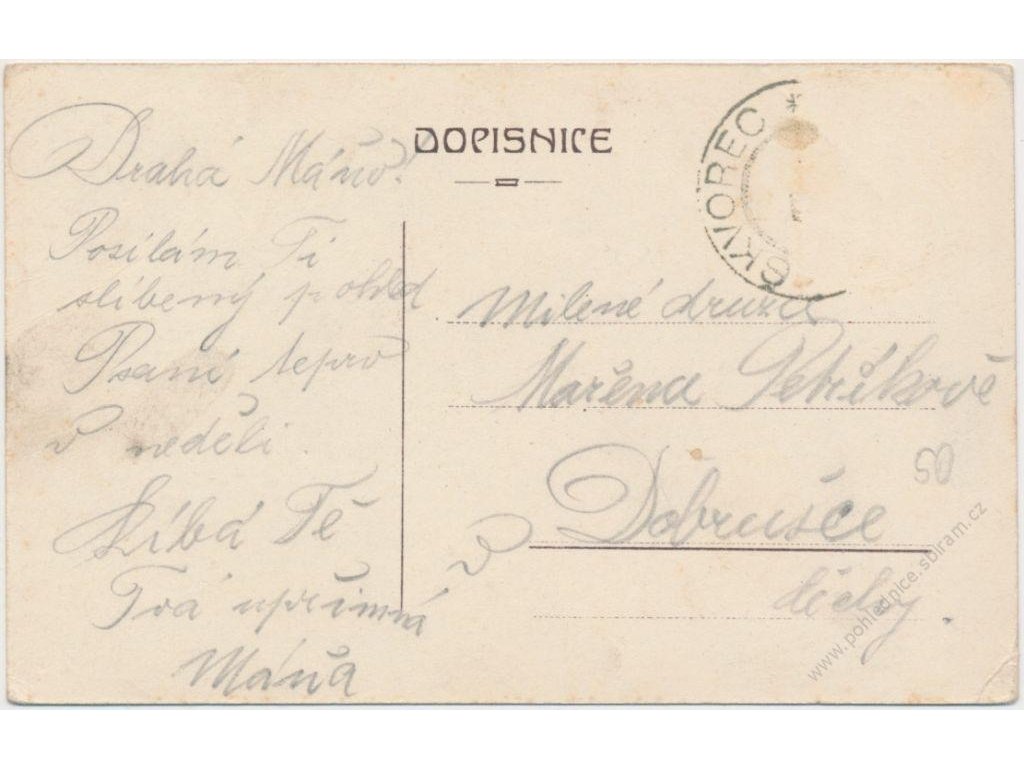 DOPISNICE
ŠKVOREC *
Drahá Máňo!
Posílám Ti
slíbený pohled
Psaní teprv
v neděli.
Líbá Tě
Tvá upřímná
Máňa
Milené družce
Mařena Petříkové
v Dobrušce
Čechy.
50
www.pohlednice.sbiram.cz